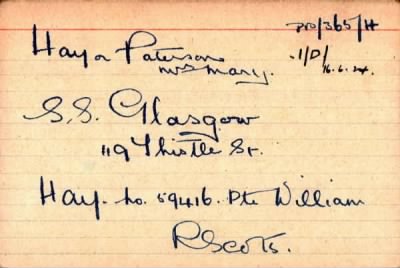 Hay or Paterson
Mrs Mary.
P20/365/H
-1/D/
16.6.24.
S.S. Glasgow
119 Thistle St.
Hay. No. 59416. Pte William
R Scots.